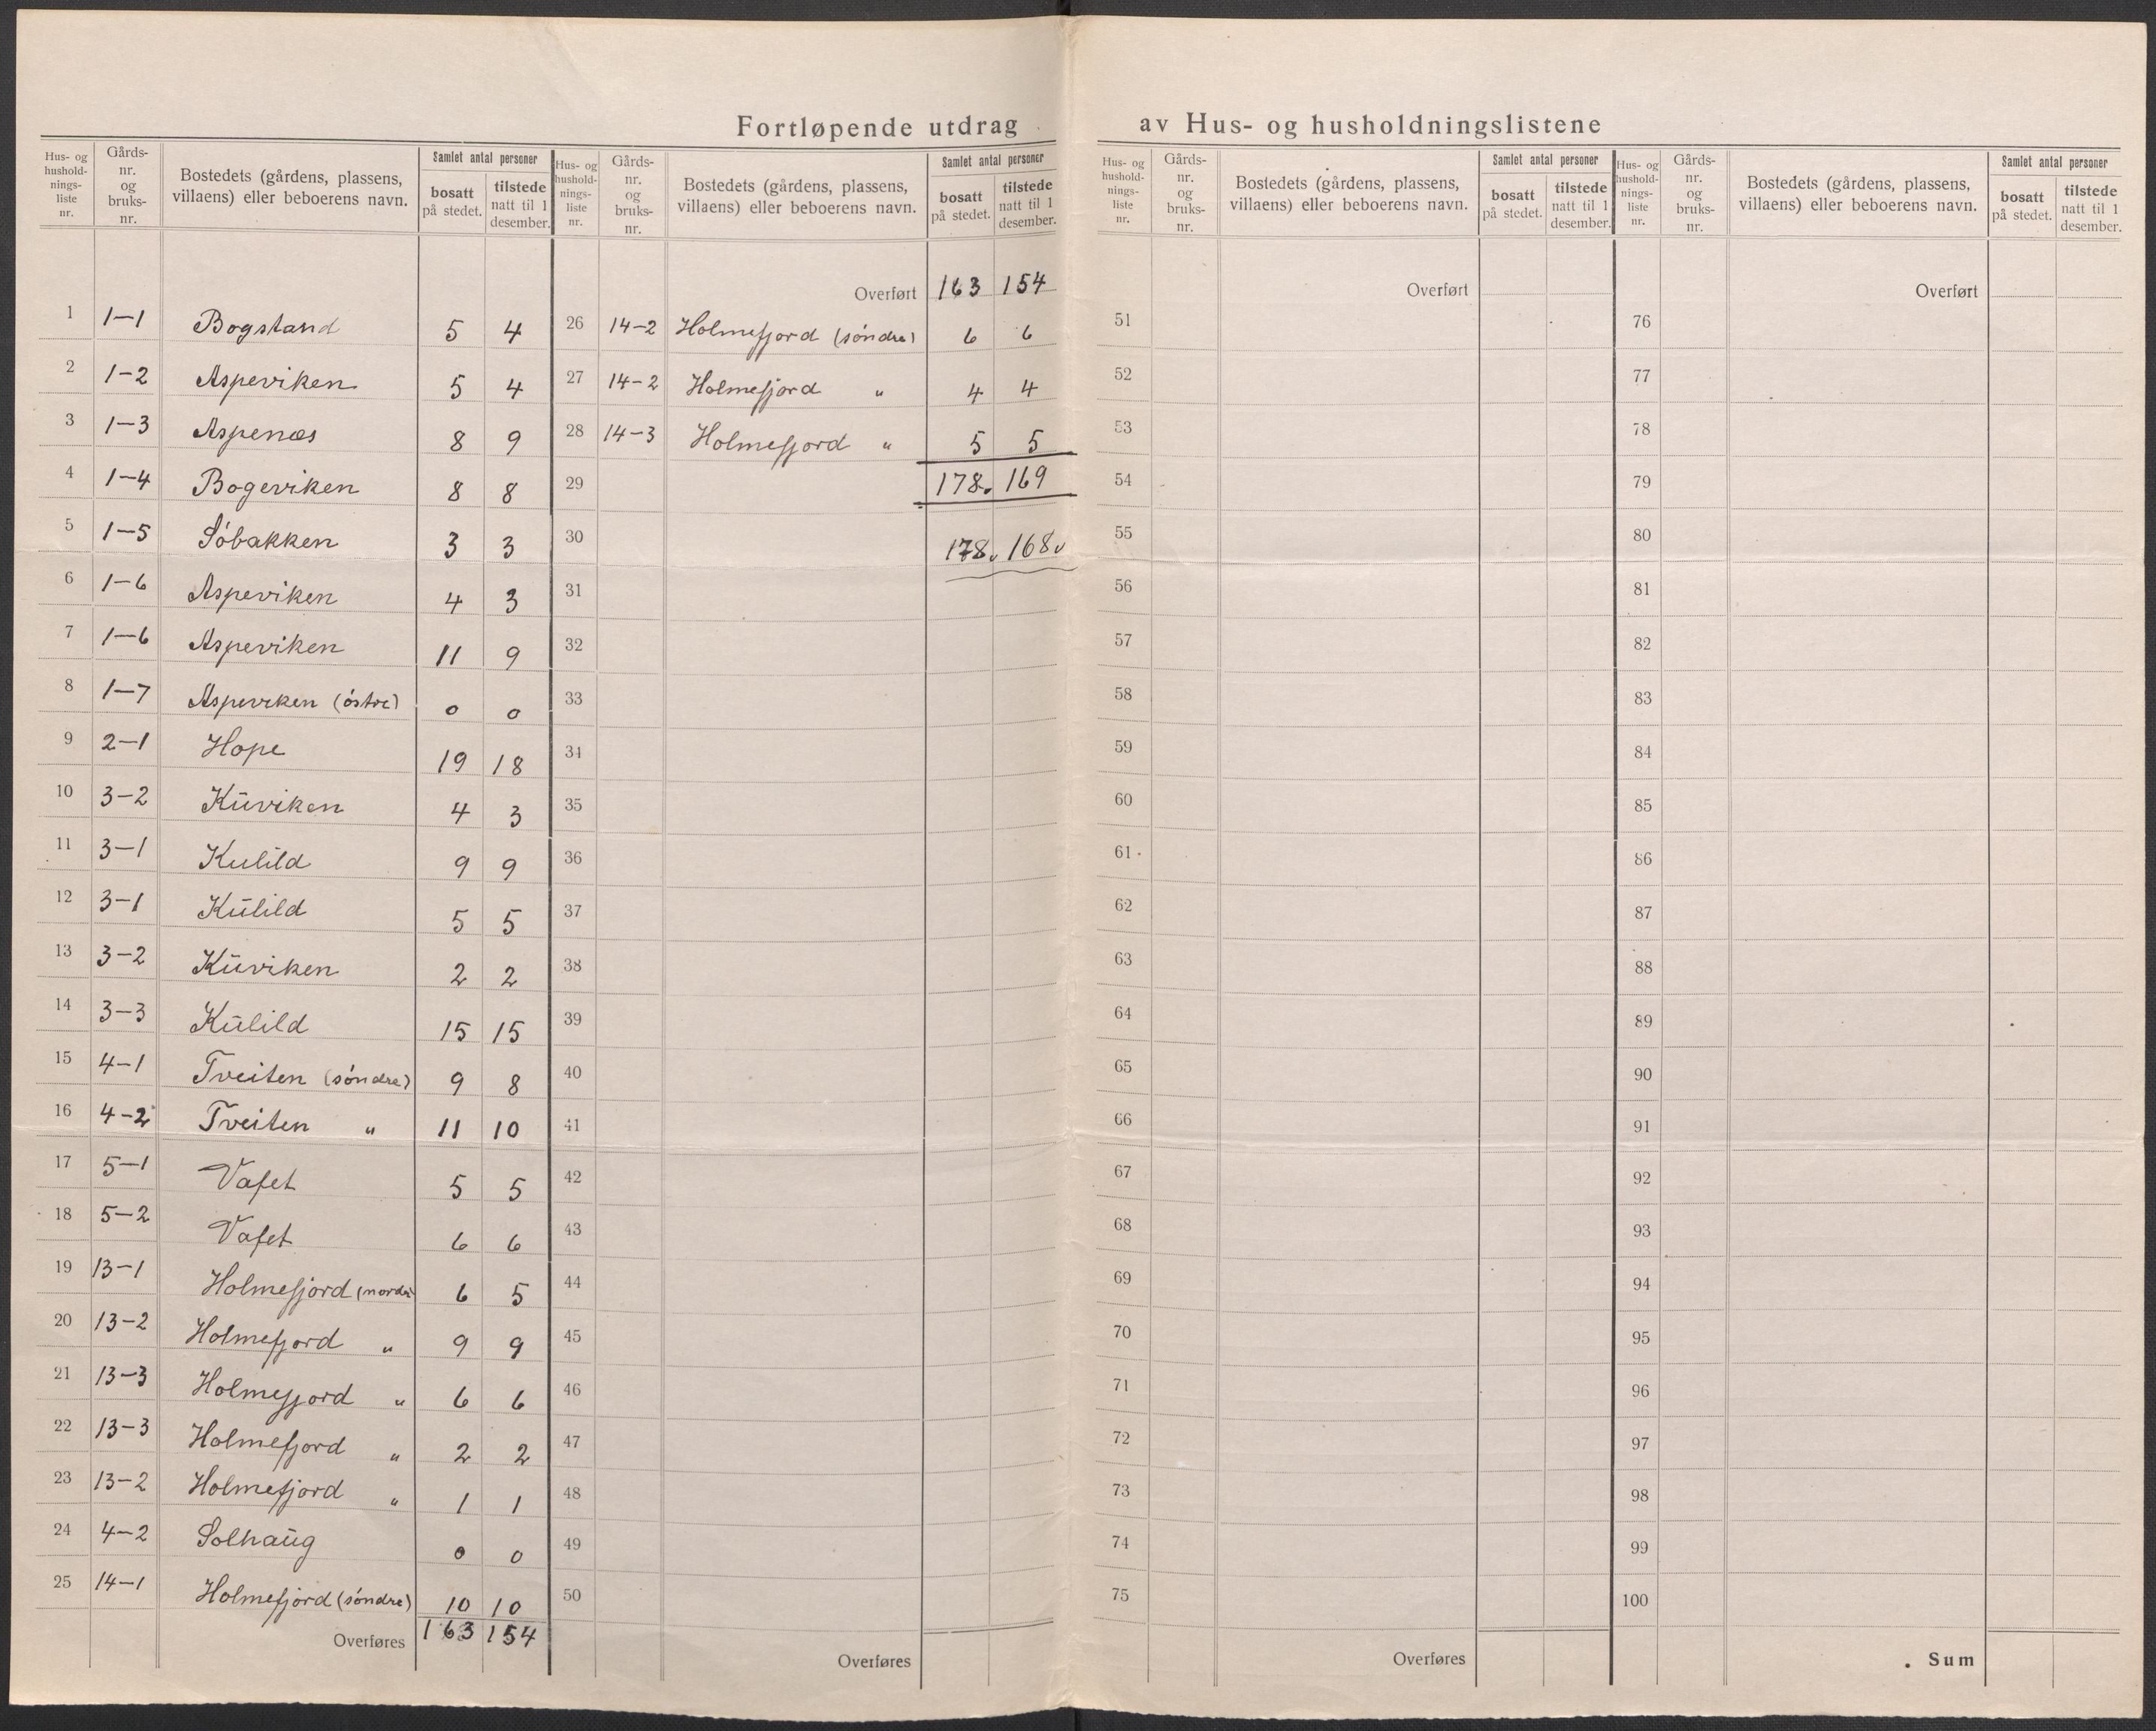 Fortløpende utdrag av Hus- og husholdningslistene
Hus- og hushold- nings- liste nr. Gårds- nr. og bruks- nr. Bostedets (gårdens, plassens, villaens) eller beboerens navn. Samlet antal personer bosatt på stedet. tilstede natt til 1 desember.
1 1-1 Bogstand 5 4
2 1-2 Aspeviken 5 4
3 1-3 Aspenæs 8 9
4 1-4 Bogeviken 8 8
5 1-5 Söbakken 3 3
6 1-6 Aspeviken 4 3
7 1-6 Aspeviken 11 9
8 1-7 Aspeviken (östre) 0 0
9 2-1 Hope 19 18
10 3-2 Kūviken 4 3
11 3-1 Kulild 9 9
12 3-1 Kūlild 5 5
13 3-2 Kūviken 2 2
14 3-3 Kūlild 15 15
15 4-1 Tveiten (söndre) 9 8
16 4-2 Tveiten " 11 10
17 5-1 Vafet 5 5
18 5-2 Vafet 6 6
19 13-1 Holmefjord (nordre 6 5
20 13-2 Holmefjord " 9 9
21 13-3 Holmefjord " 6 6
22 13-3 Holmefjord " 2 2
23 13-2 Holmefjord " 1 1
24 4-2 Solhaūg 0 0
25 14-1 Holmefjord (söndre) 10 10
Overføres 163 154
Hus- og hushold- nings- liste nr. Gårds- nr. og bruks- nr. Bostedets (gårdens, plassens, villaens) eller beboerens navn. Samlet antal personer bosatt på stedet. tilstede natt til 1 desember.
Overført 163 154
26 14-2 Holmefjord (söndre) 6 6
27 14-2 Holmefjord " 4 4
28 14-3 Holmefjord " 5 5
29 178. 169
30 178v 168v
31
32
33
34
35
36
37
38
39
40
41
42
43
44
45
46
47
48
49
50
Overføres
Hus- og hushold- nings- liste nr. Gårds- nr. og bruks- nr. Bostedets (gårdens, plassens, villaens) eller beboerens navn. Samlet antal personer bosatt på stedet. tilstede natt til 1 desember.
Overført
51
52
53
54
55
56
57
58
59
60
61
62
63
64
65
66
67
68
69
70
71
72
73
74
75
Overføres
Hus- og hushold- nings- liste nr. Gårds- nr. og bruks- nr. Bostedets (gårdens, plassens, villaens) eller beboerens navn. Samlet antal personer bosatt på stedet. tilstede natt til 1 desember.
Overført
76
77
78
79
80
81
82
83
84
85
86
87
88
89
90
91
92
93
94
95
96
97
98
99
100
Sum